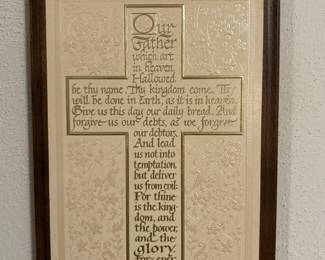 Our
Father
which art
in heaven,
Hallowed
be thy name. Thy kingdom come. Thy
will be done in Earth, as it is in heaven.
Give us this day our daily bread. And
forgive us our debts, as we forgive
our debtors.
And lead
us not into
temptation,
but deliver
us from evil:
For thine
is the king-
dom, and
the power,
and the
glory,
for ever